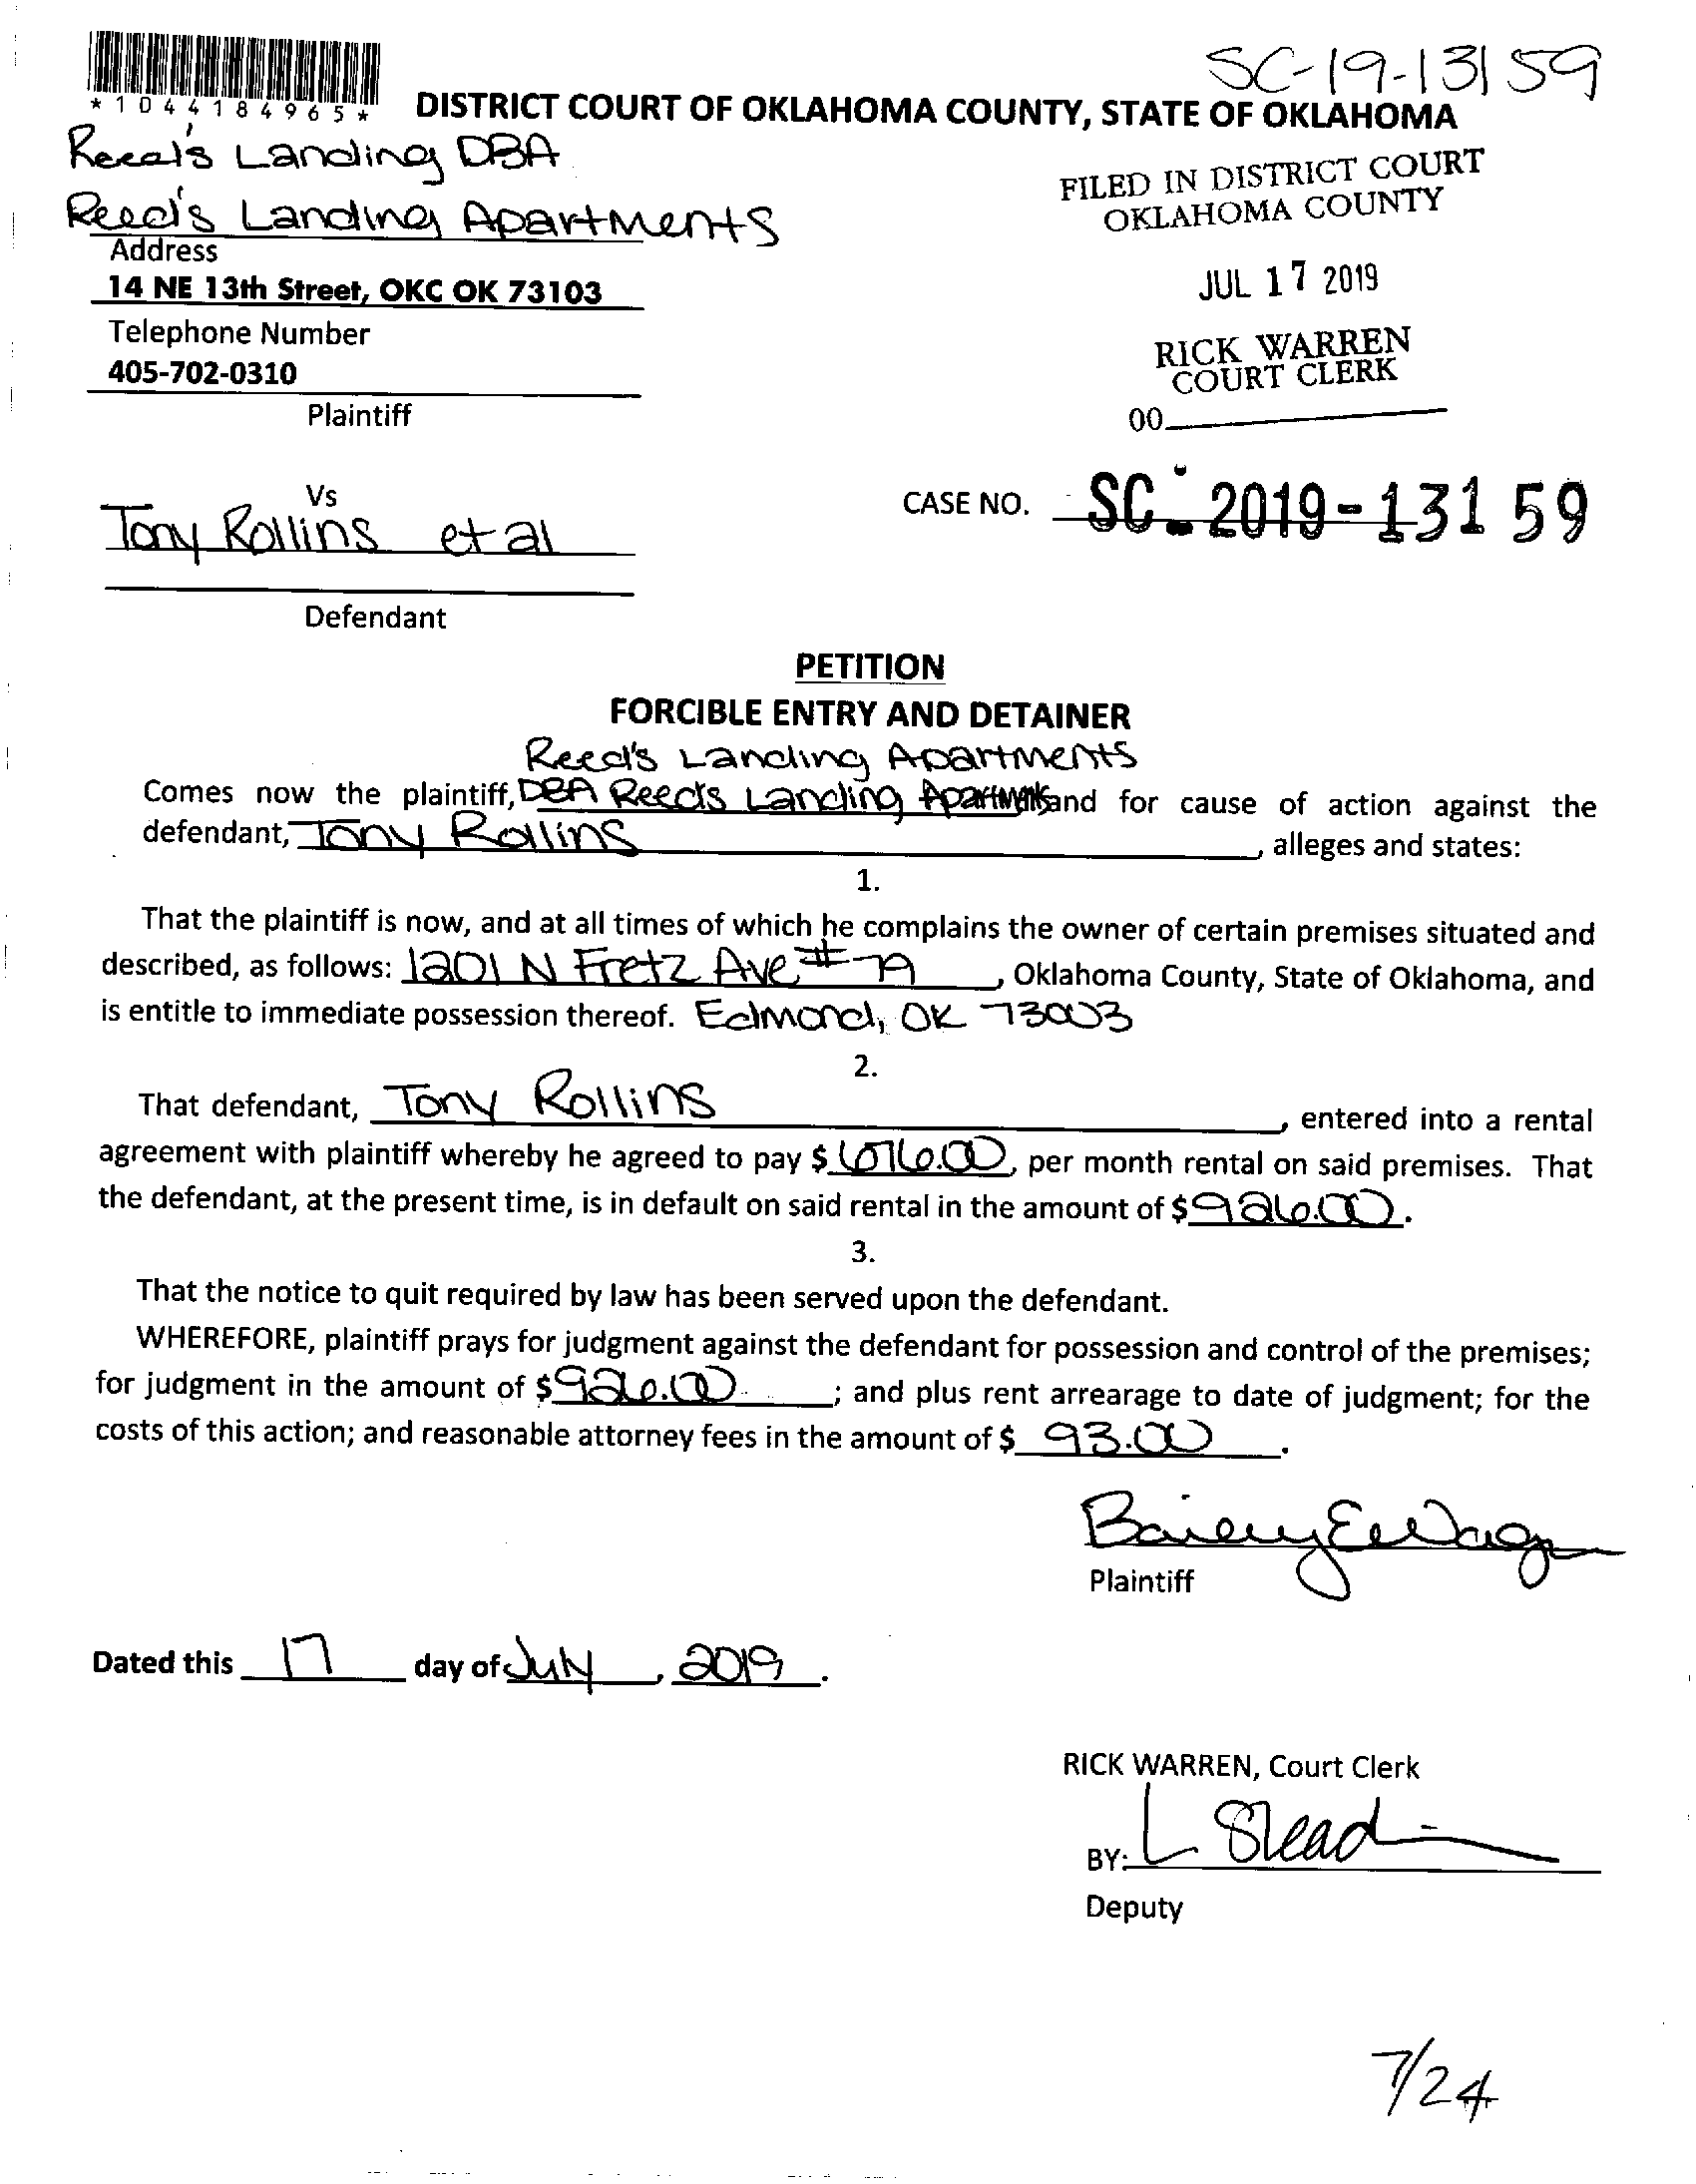 SC-19-13159
*1044184965*
DISTRICT COURT OF OKLAHOMA COUNTY, STATE OF OKLAHOMA
Reed's Landing DBA
Reed's Landing Apartments
Address
14 NE 13th Street, OKC OK 73103
Telephone Number
405-702-0310
Plaintiff
FILED IN DISTRICT COURT
OKLAHOMA COUNTY
JUL 17 2019
RICK WARREN
COURT CLERK
00
Vs
Tony Rollins et al
Defendant
CASE NO. SC-2019-13159
PETITION
FORCIBLE ENTRY AND DETAINER
Reed's Landing Apartments
Comes now the plaintiff, DBA Reed's Landing Apartments and for cause of action against the
defendant, Tony Rollins, alleges and states:
1.
That the plaintiff is now, and at all times of which he complains the owner of certain premises situated and
described, as follows: 1201 N Fretz Ave #, Oklahoma County, State of Oklahoma, and
is entitle to immediate possession thereof. Edmond, OK 73003
2.
That defendant, Tony Rollins, entered into a rental
agreement with plaintiff whereby he agreed to pay $, per month rental on said premises. That
the defendant, at the present time, is in default on said rental in the amount of $926.00.
3.
That the notice to quit required by law has been served upon the defendant.
WHEREFORE, plaintiff prays for judgment against the defendant for possession and control of the premises;
for judgment in the amount of $926.00; and plus rent arrearage to date of judgment; for the
costs of this action; and reasonable attorney fees in the amount of $ 93.00.
Plaintiff
Dated this 17 day of July, 2019.
RICK WARREN, Court Clerk
BY:
Deputy
7/24